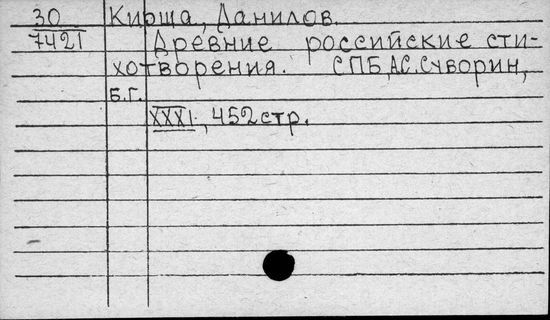 30 Кирша, Данилов.
7421 Древние российские сти-
хотворения. СПБ, А.С. Суворин,
б.г.
XXXI, 452 стр.